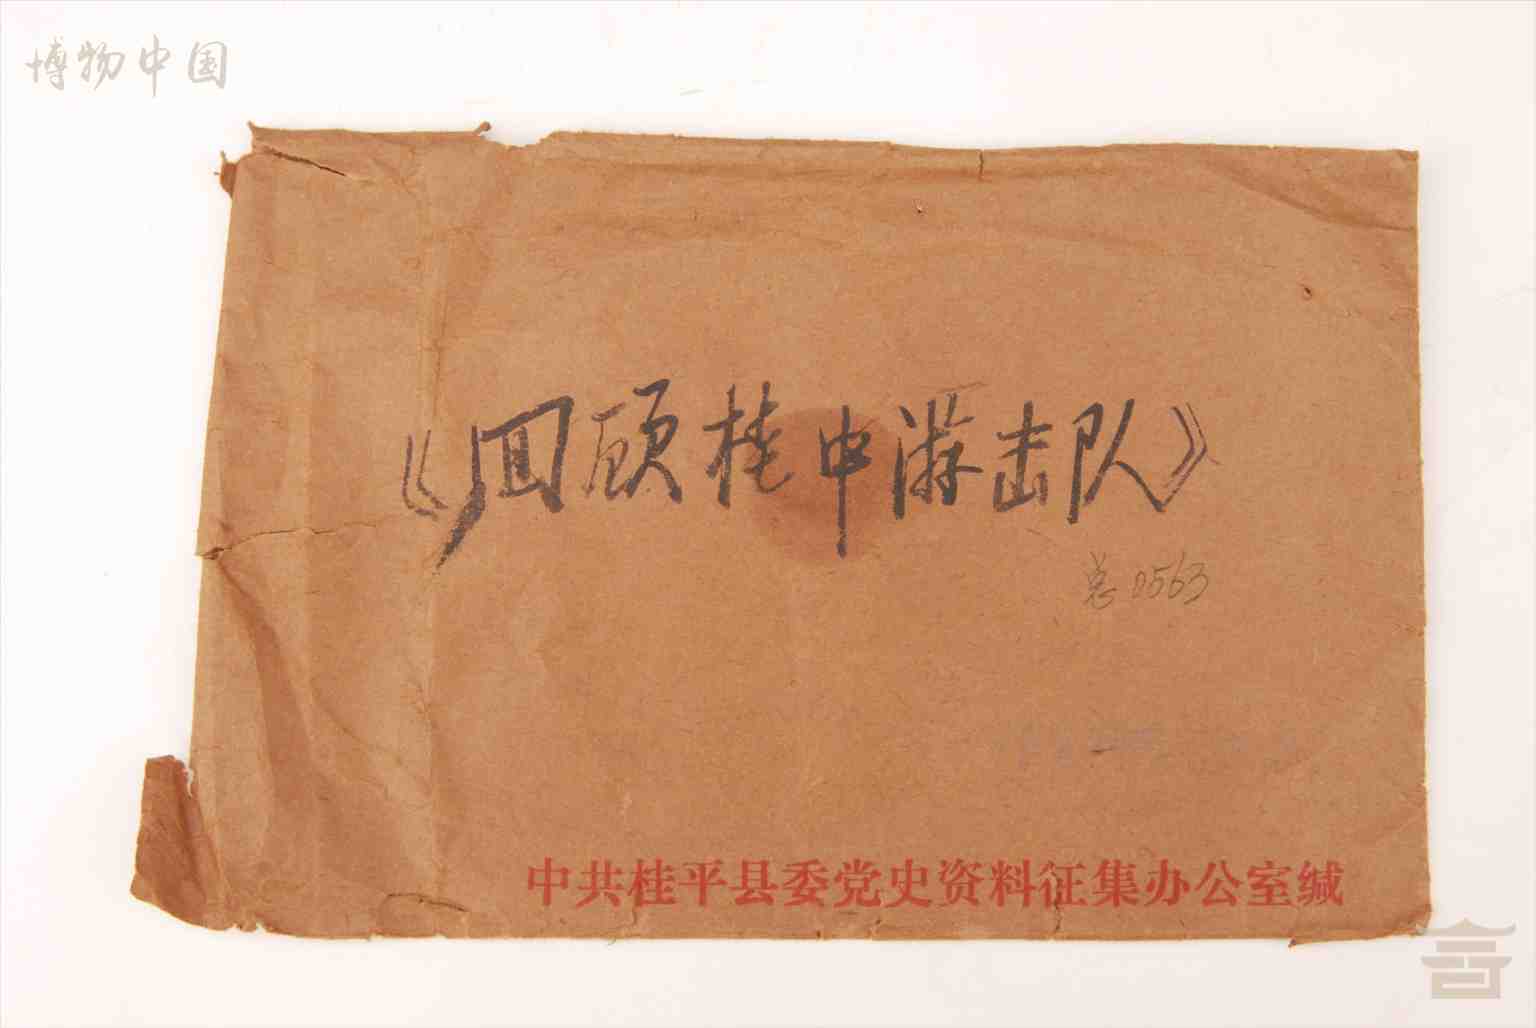 博物中国
《回顾桂中游击队》
总0563
中共桂平县委党史资料征集办公室缄